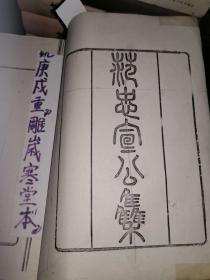 范忠宣公集
庚戌重雕歲寒堂本